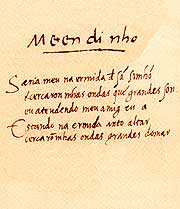 Meen di nho
Seria meu na ermida d sã simhõ
cercaron mhas ondas que grandes son
eu atendendo meu amig eu a
Estando na ermida ante altar
cercarõ mhas ondas grandes do mar